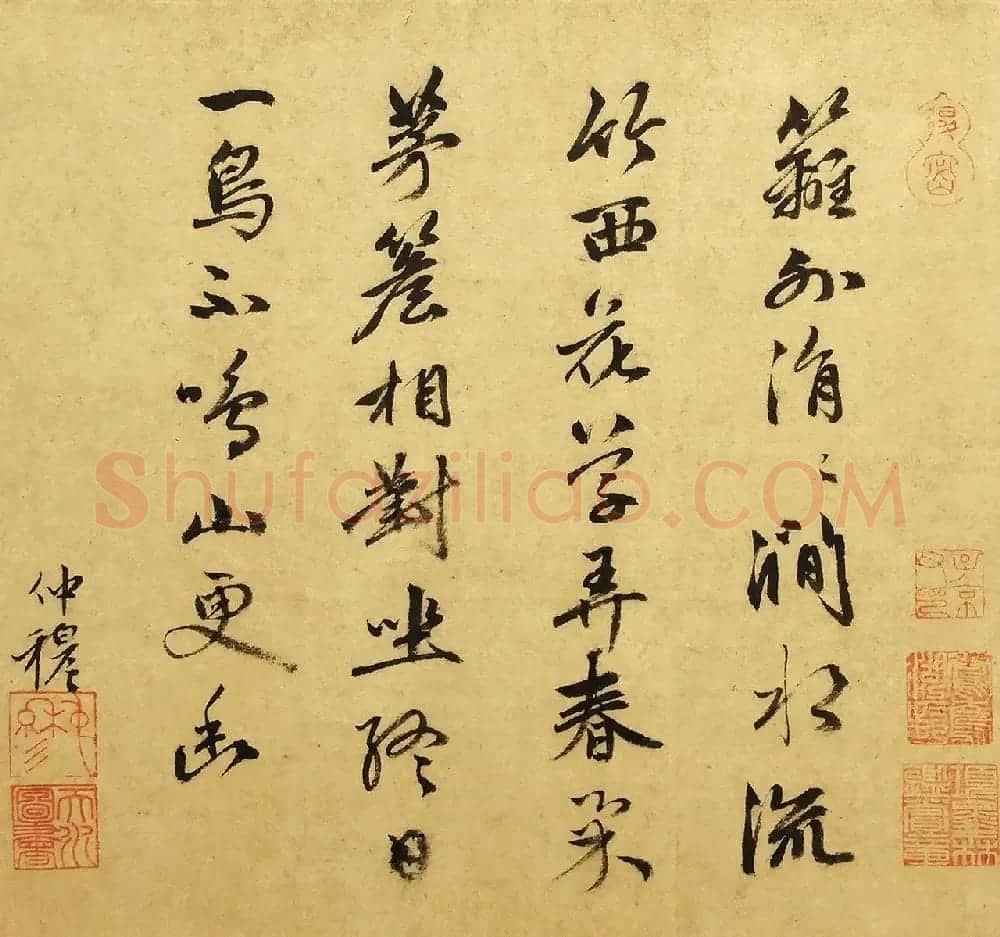 籬外涓〻澗水流
竹西花草弄春柔
茅簷相對坐終日
一鳥不鳴山更幽
仲穆
仲穆
天水圖書
Shufaziliao.COM